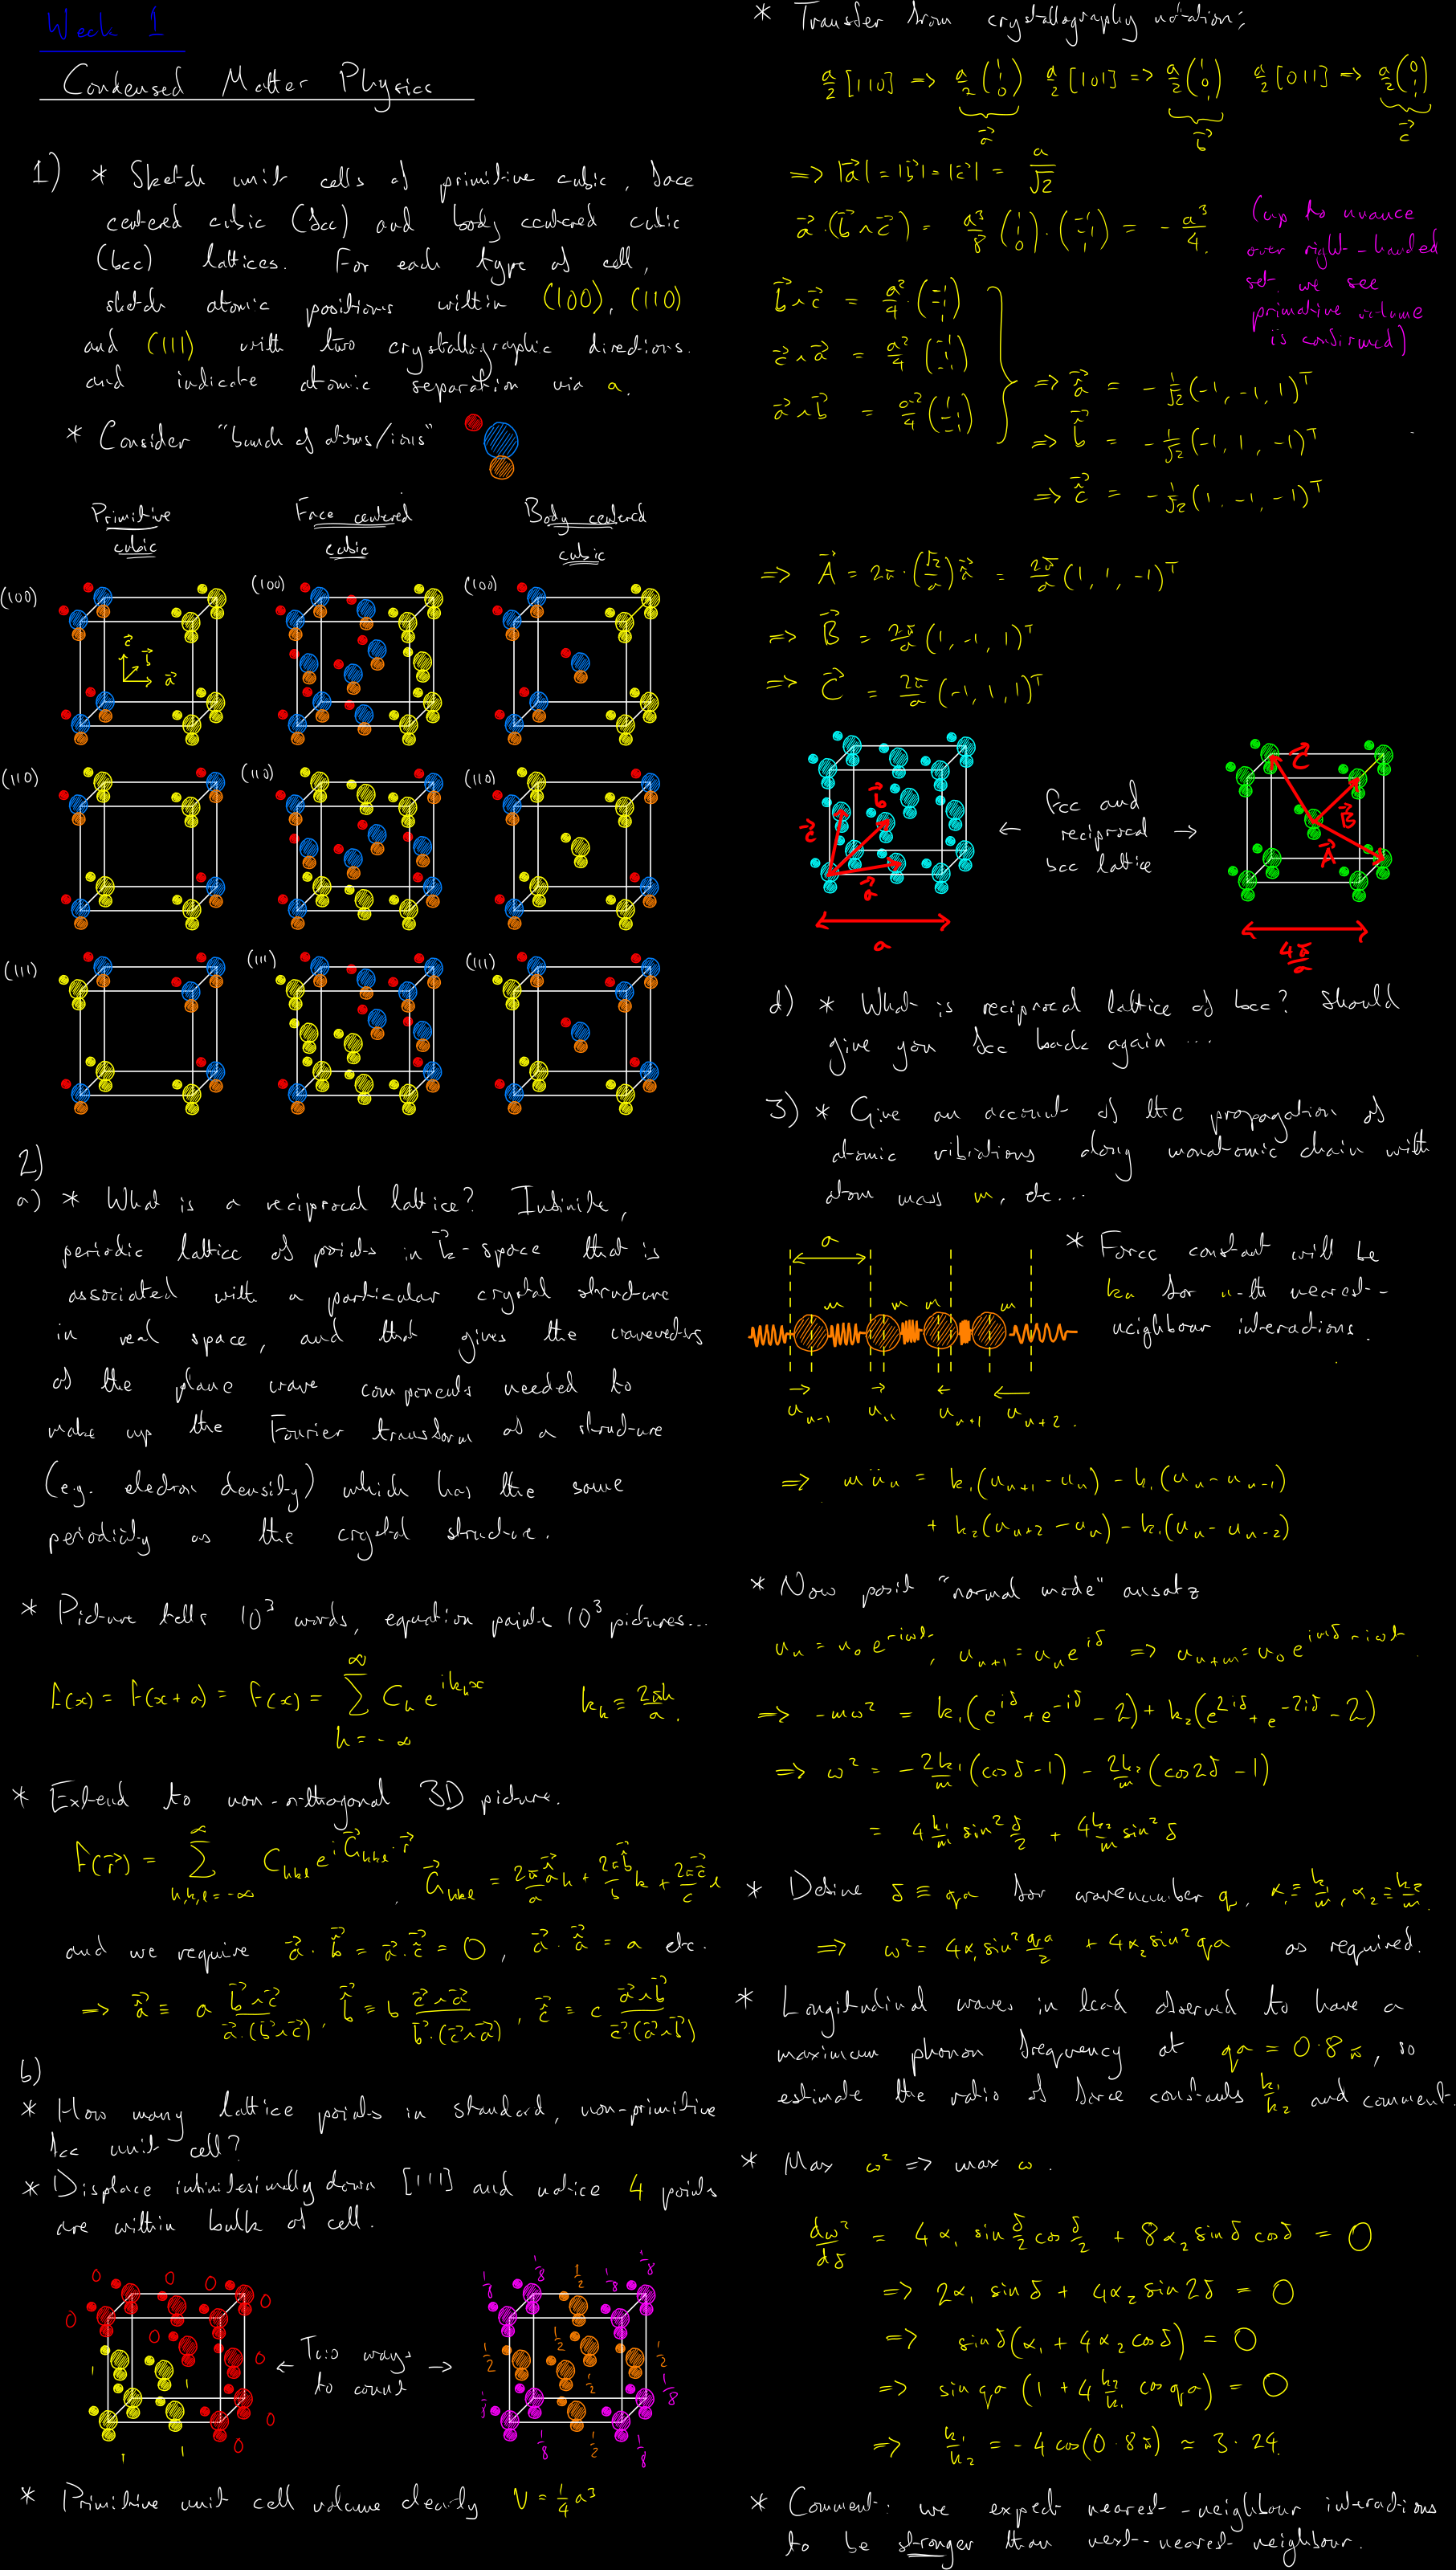 Week 1
Condensed Matter Physics
1) * Sketch unit cells of primitive cubic, face
centered cubic (fcc) and body centered cubic
(bcc) lattices. For each type of cell,
sketch atomic positions within (100), (110)
and (111) with two crystallographic directions.
and indicate atomic separation via a.
* Consider "bunch of atoms/ions"
Primitive cubic
Face centered cubic
Body centered cubic
(100) (100) (100)
c⃗ b⃗ a⃗
(110) (110) (110)
(111) (111) (111)
2)
a) * What is a reciprocal lattice? Infinite,
periodic lattice of points in k⃗-space that is
associated with a particular crystal structure
in real space, and that gives the wavevectors
of the plane wave components needed to
make up the Fourier transform of a structure
(e.g. electron density) which has the same
periodicity as the crystal structure.
* Picture tells 10³ words, equation paints 10³ pictures...
f(x) = f(x+a) = f(x) = ∑_{h=-∞}^{∞} C_h e^{ik_h x} k_h ≡ 2πh/a.
* Extend to non-orthogonal 3D picture.
f(r⃗) = ∑_{h,k,l=-∞}^{∞} C_{hkl} e^{iG⃗_{hkl}·r⃗}, G⃗_{hkl} = 2πâ⃗/a h + 2πb̂⃗/b k + 2πĉ⃗/c l
and we require a⃗·b̂⃗ = a⃗·ĉ⃗ = 0, a⃗·â⃗ = a etc.
⇒ â⃗ ≡ a (b⃗∧c⃗)/(a⃗·(b⃗∧c⃗)), b̂⃗ ≡ b (c⃗∧a⃗)/(b⃗·(c⃗∧a⃗)), ĉ⃗ ≡ c (a⃗∧b⃗)/(c⃗·(a⃗∧b⃗))
b)
* How many lattice points in standard, non-primitive
fcc unit cell?
* Displace infinitesimally down [111] and notice 4 points
are within bulk of cell.
0 0 0 0 0 0 0 0 0 0 1 1 1 1
← Two ways to count →
1/8 1/8 1/2 1/8 1/8 1/2 1/2 1/2 1/2 1/8 1/8 1/2 1/8
* Primitive unit cell volume clearly V = ¼a³
* Transfer from crystallography notation;
a/2 [110] ⇒ a/2 (1 1 0) a/2 [101] ⇒ a/2 (1 0 1) a/2 [011] ⇒ a/2 (0 1 1)
a⃗ b⃗ c⃗
⇒ |a⃗| = |b⃗| = |c⃗| = a/√2
a⃗·(b⃗∧c⃗) = a³/8 (1 1 0)·(-1 -1 1) = -a³/4.
(up to nuance
over right-handed
set, we see
primative volume
is confirmed)
b⃗∧c⃗ = a²/4·(-1 -1 1)
c⃗∧a⃗ = a²/4 (-1 1 -1)
a⃗∧b⃗ = a²/4 (1 -1 -1)
⇒ â⃗ = -1/√2 (-1, -1, 1)ᵀ
⇒ b̂⃗ = -1/√2 (-1, 1, -1)ᵀ
⇒ ĉ⃗ = -1/√2 (1, -1, -1)ᵀ
⇒ A⃗ = 2π·(√2/a) â⃗ = 2π/a (1, 1, -1)ᵀ
⇒ B⃗ = 2π/a (1, -1, 1)ᵀ
⇒ C⃗ = 2π/a (-1, 1, 1)ᵀ
c⃗ b⃗ a⃗
a
← fcc and reciprocal bcc lattice →
C⃗ B⃗ A⃗
4π/a
d) * What is reciprocal lattice of bcc? Should
give you fcc back again ...
3) * Give an account of the propagation of
atomic vibrations along monatomic chain with
atom mass m, etc...
* Force constant will be
kn for n-th nearest-
neighbour interactions.
a
m m m m
u_{n-1} u_n u_{n+1} u_{n+2}.
⇒ mü_n = k₁(u_{n+1} - u_n) - k₁(u_n - u_{n-1})
+ k₂(u_{n+2} - u_n) - k₁(u_n - u_{n-2})
* Now posit "normal mode" ansatz
u_n = u₀e^{-iωt}, u_{n+1} = u_n e^{iδ} ⇒ u_{n+m} = u₀e^{imδ-iωt}.
⇒ -mω² = k₁(e^{iδ} + e^{-iδ} - 2) + k₂(e^{2iδ} + e^{-2iδ} - 2)
⇒ ω² = -2k₁/m (cosδ - 1) - 2k₂/m (cos2δ - 1)
= 4 k₁/m sin² δ/2 + 4k₂/m sin² δ
* Define δ ≡ qa for wavenumber q, α₁ ≡ k₁/m, α₂ ≡ k₂/m.
⇒ ω² = 4α₁ sin² qa/2 + 4α₂ sin² qa as required.
* Longitudinal waves in lead observed to have a
maximum phonon frequency at qa = 0.8π, so
estimate the ratio of force constants k₁/k₂ and comment.
* Max ω² ⇒ max ω.
dω²/dδ = 4α₁ sin δ/2 cos δ/2 + 8α₂ sinδ cosδ = 0
⇒ 2α₁ sin δ + 4α₂ sin 2δ = 0
⇒ sinδ(α₁ + 4α₂ cosδ) = 0
⇒ sin qa (1 + 4 k₂/k₁ cos qa) = 0
⇒ k₁/k₂ = -4 cos(0.8π) ≃ 3.24.
* Comment: we expect nearest-neighbour interactions
to be stronger than next-nearest neighbour.